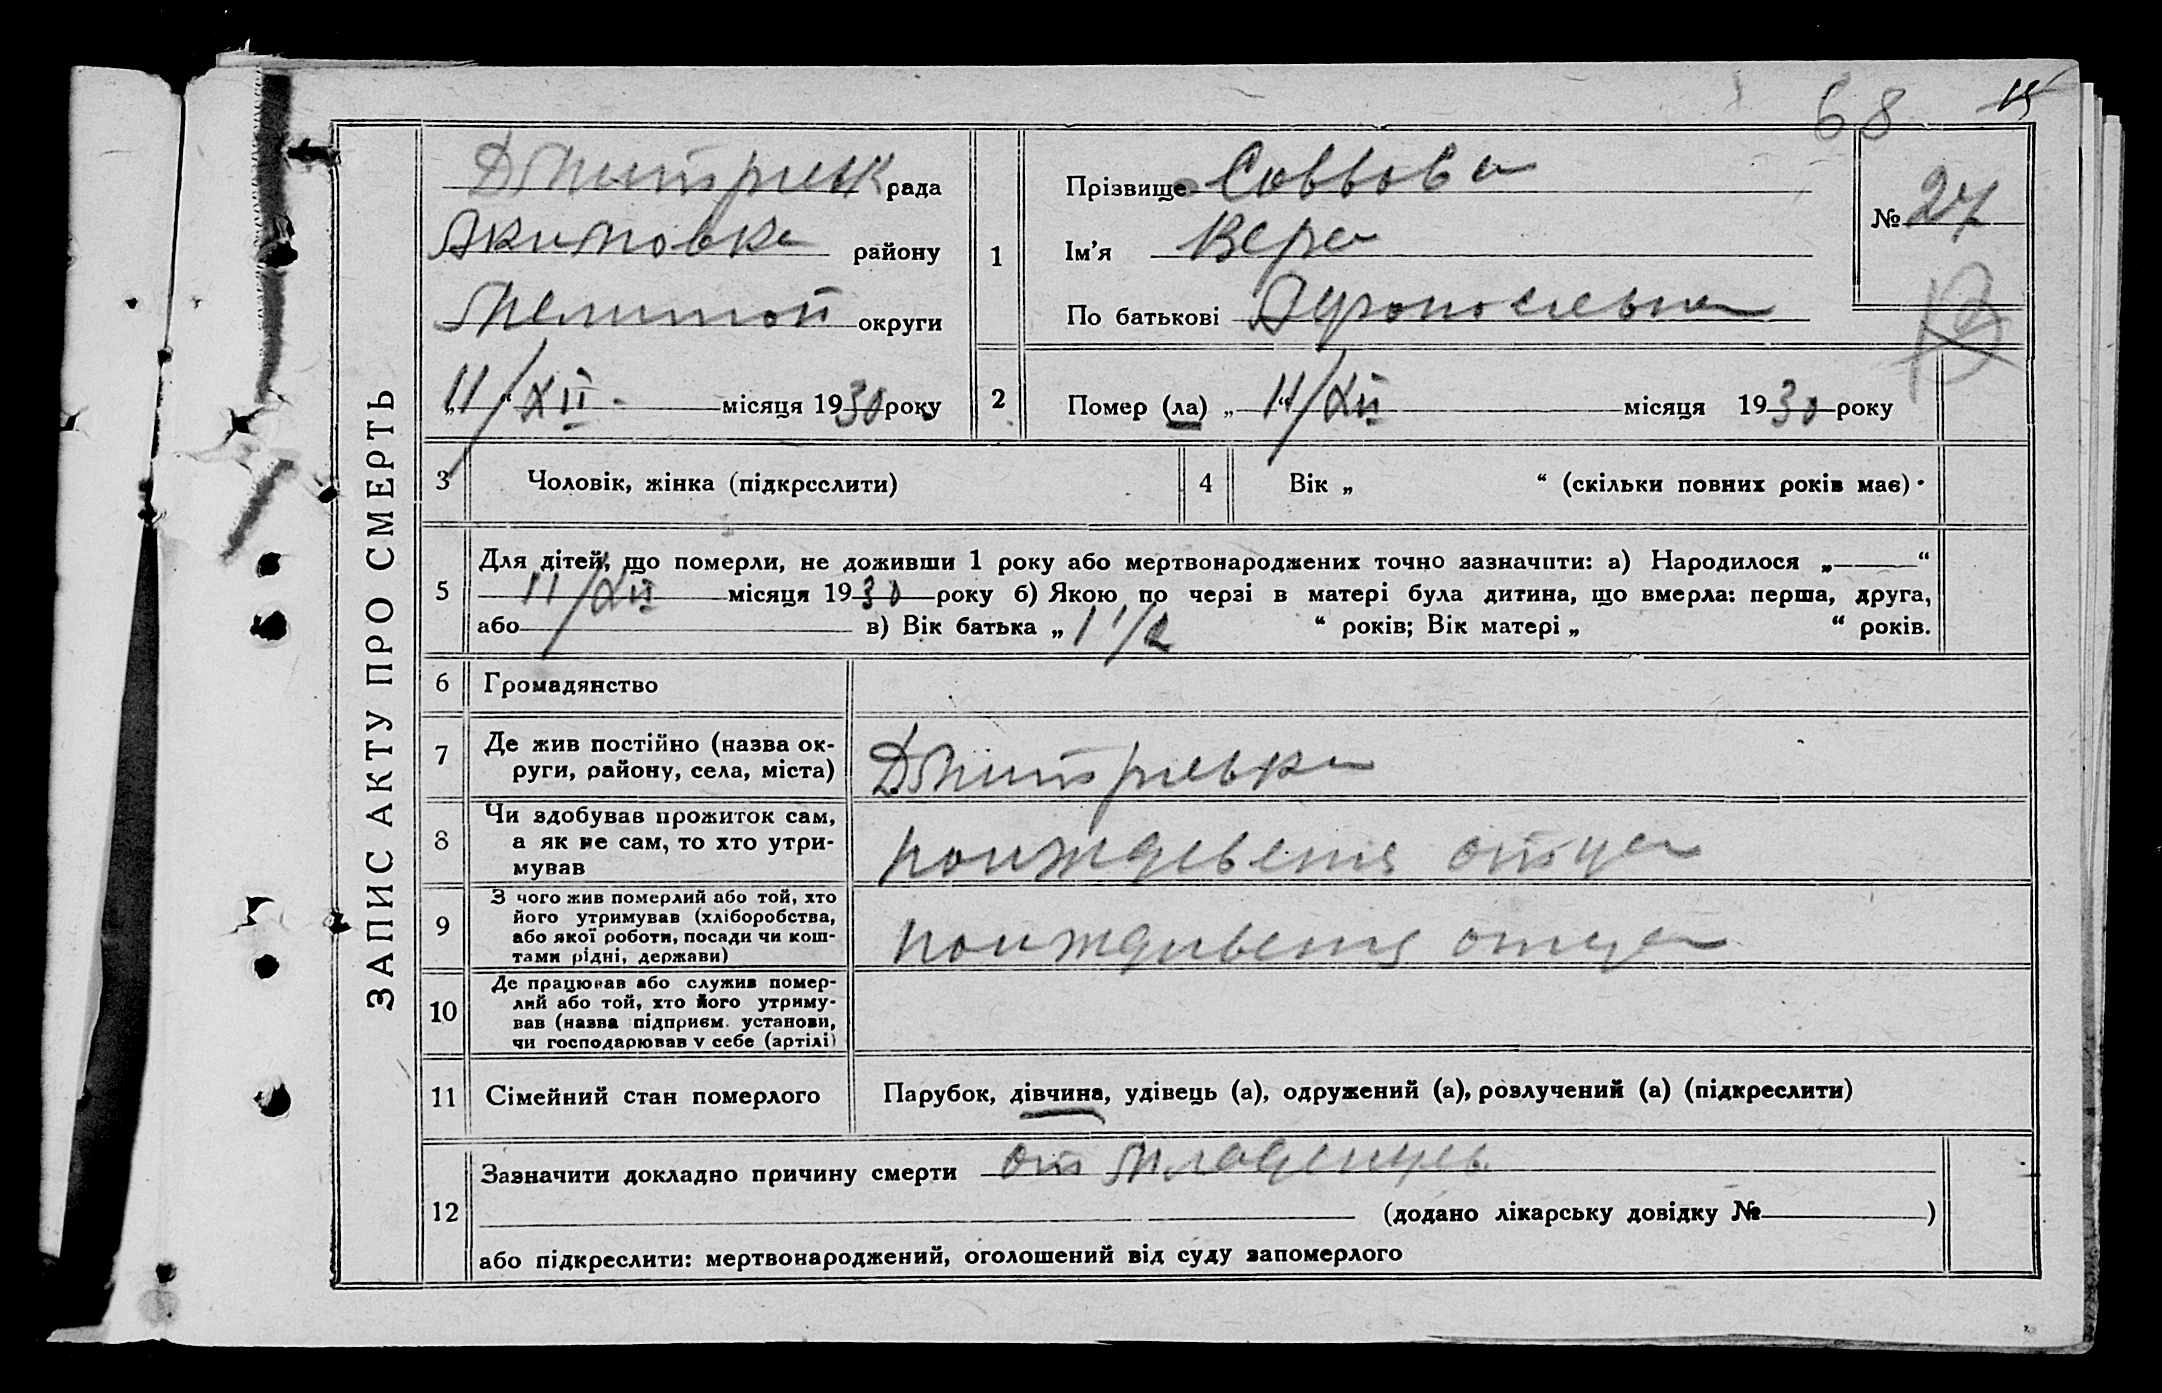 68 15
ЗАПИС АКТУ ПРО СМЕРТЬ
Дмитриевк рада
Якимовка району
Мелитоп округи
„11/XII“ місяця 1930 року
1
Прізвище Соввова
Ім'я Вера
По батькові
№ 27
2
Помер (ла) „11/XII“ місяця 1930 року
3 Чоловік, жінка (підкреслити)
4 Вік „ “ (скільки повних років має)
5
Для дітей, що померли, не доживши 1 року або мертвонароджених точно зазначити: а) Народилося „ “
11/XII місяця 1930 року б) Якою по черзі в матері була дитина, що вмерла: перша, друга,
або в) Вік батька „1 1/2 “ років; Вік матері „ “ років.
6 Громадянство
7 Де жив постійно (назва ок-
руги, району, села, міста)
Дмитриевка
8 Чи здобував прожиток сам,
а як не сам, то хто утри-
мував
отца
9 З чого жив померлий або той, хто
його утримував (хліборобства,
або якої роботи, посади чи кош-
тами рідні, держави)
отца
10 Де працював або служив помер-
лий або той, хто його утриму-
вав (назва підприєм. установи,
чи господарював у себе (артілі)
11 Сімейний стан померлого
Парубок, дівчина, удівець (а), одружений (а), розлучений (а) (підкреслити)
12
Зазначити докладно причину смерти от младенцев
(додано лікарську довідку № )
або підкреслити: мертвонароджений, оголошений від суду запомерлого